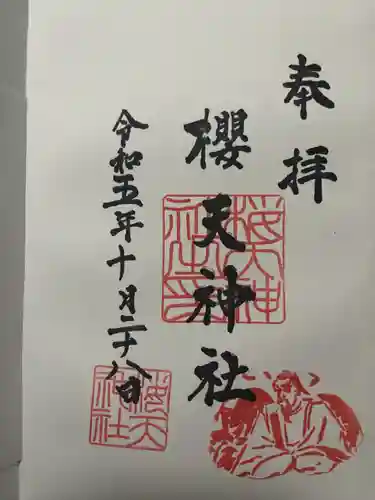 奉拝
櫻天神社
令和五年十月二十八日
桜天神社印
桜天神社